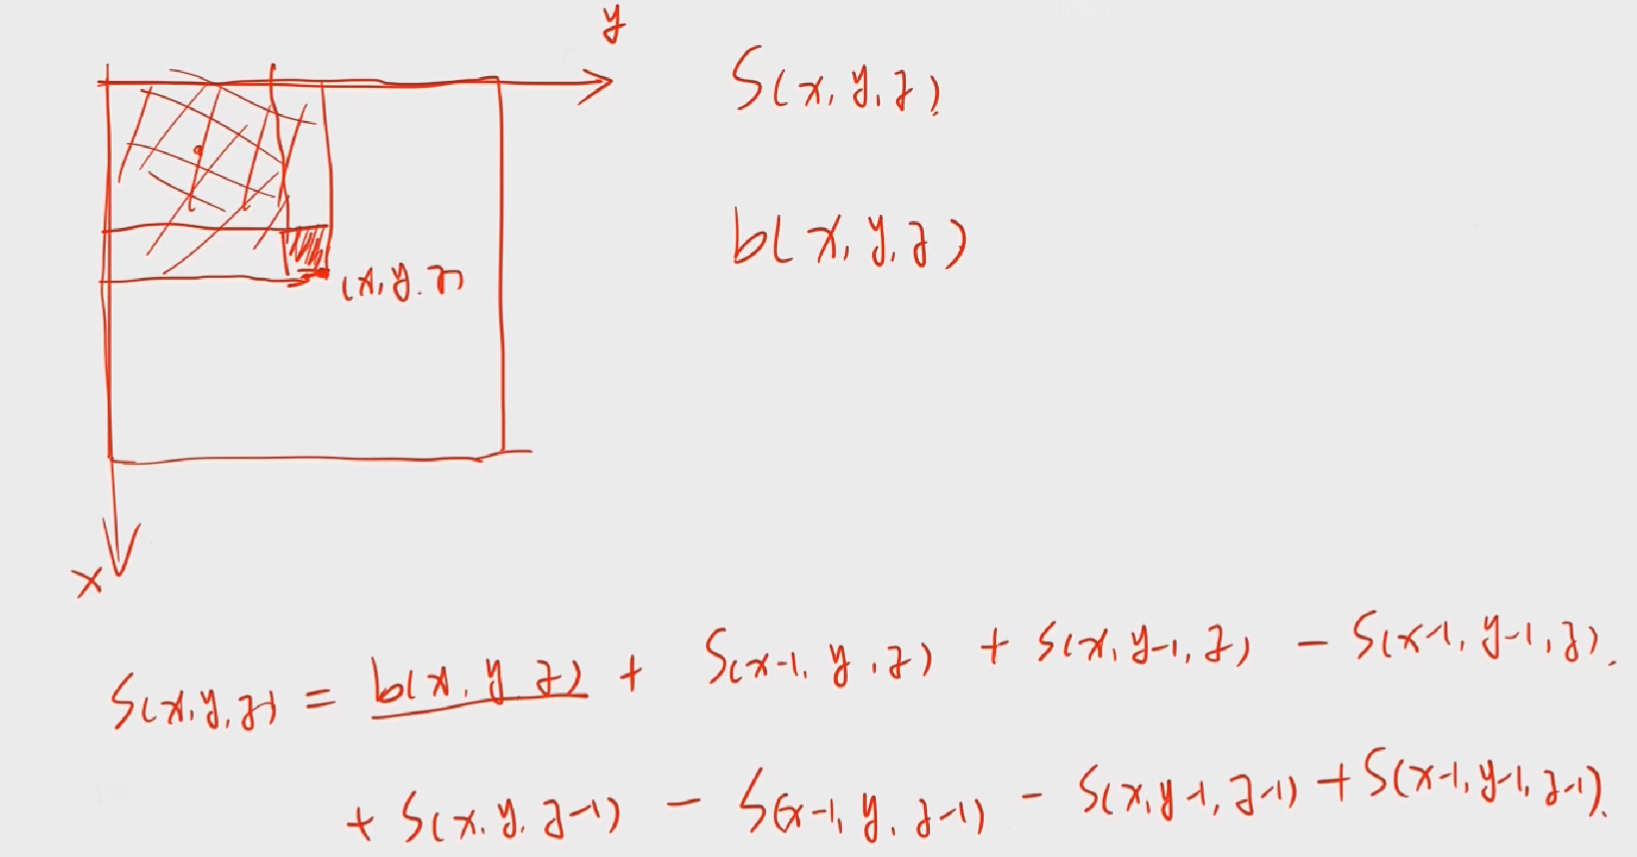 y
S(x, y, z)
b(x, y, z)
(x, y, z)
x
S(x, y, z) = b(x, y, z) + S(x-1, y, z) + S(x, y-1, z) - S(x-1, y-1, z).
+ S(x, y, z-1) - S(x-1, y, z-1) - S(x, y-1, z-1) + S(x-1, y-1, z-1).